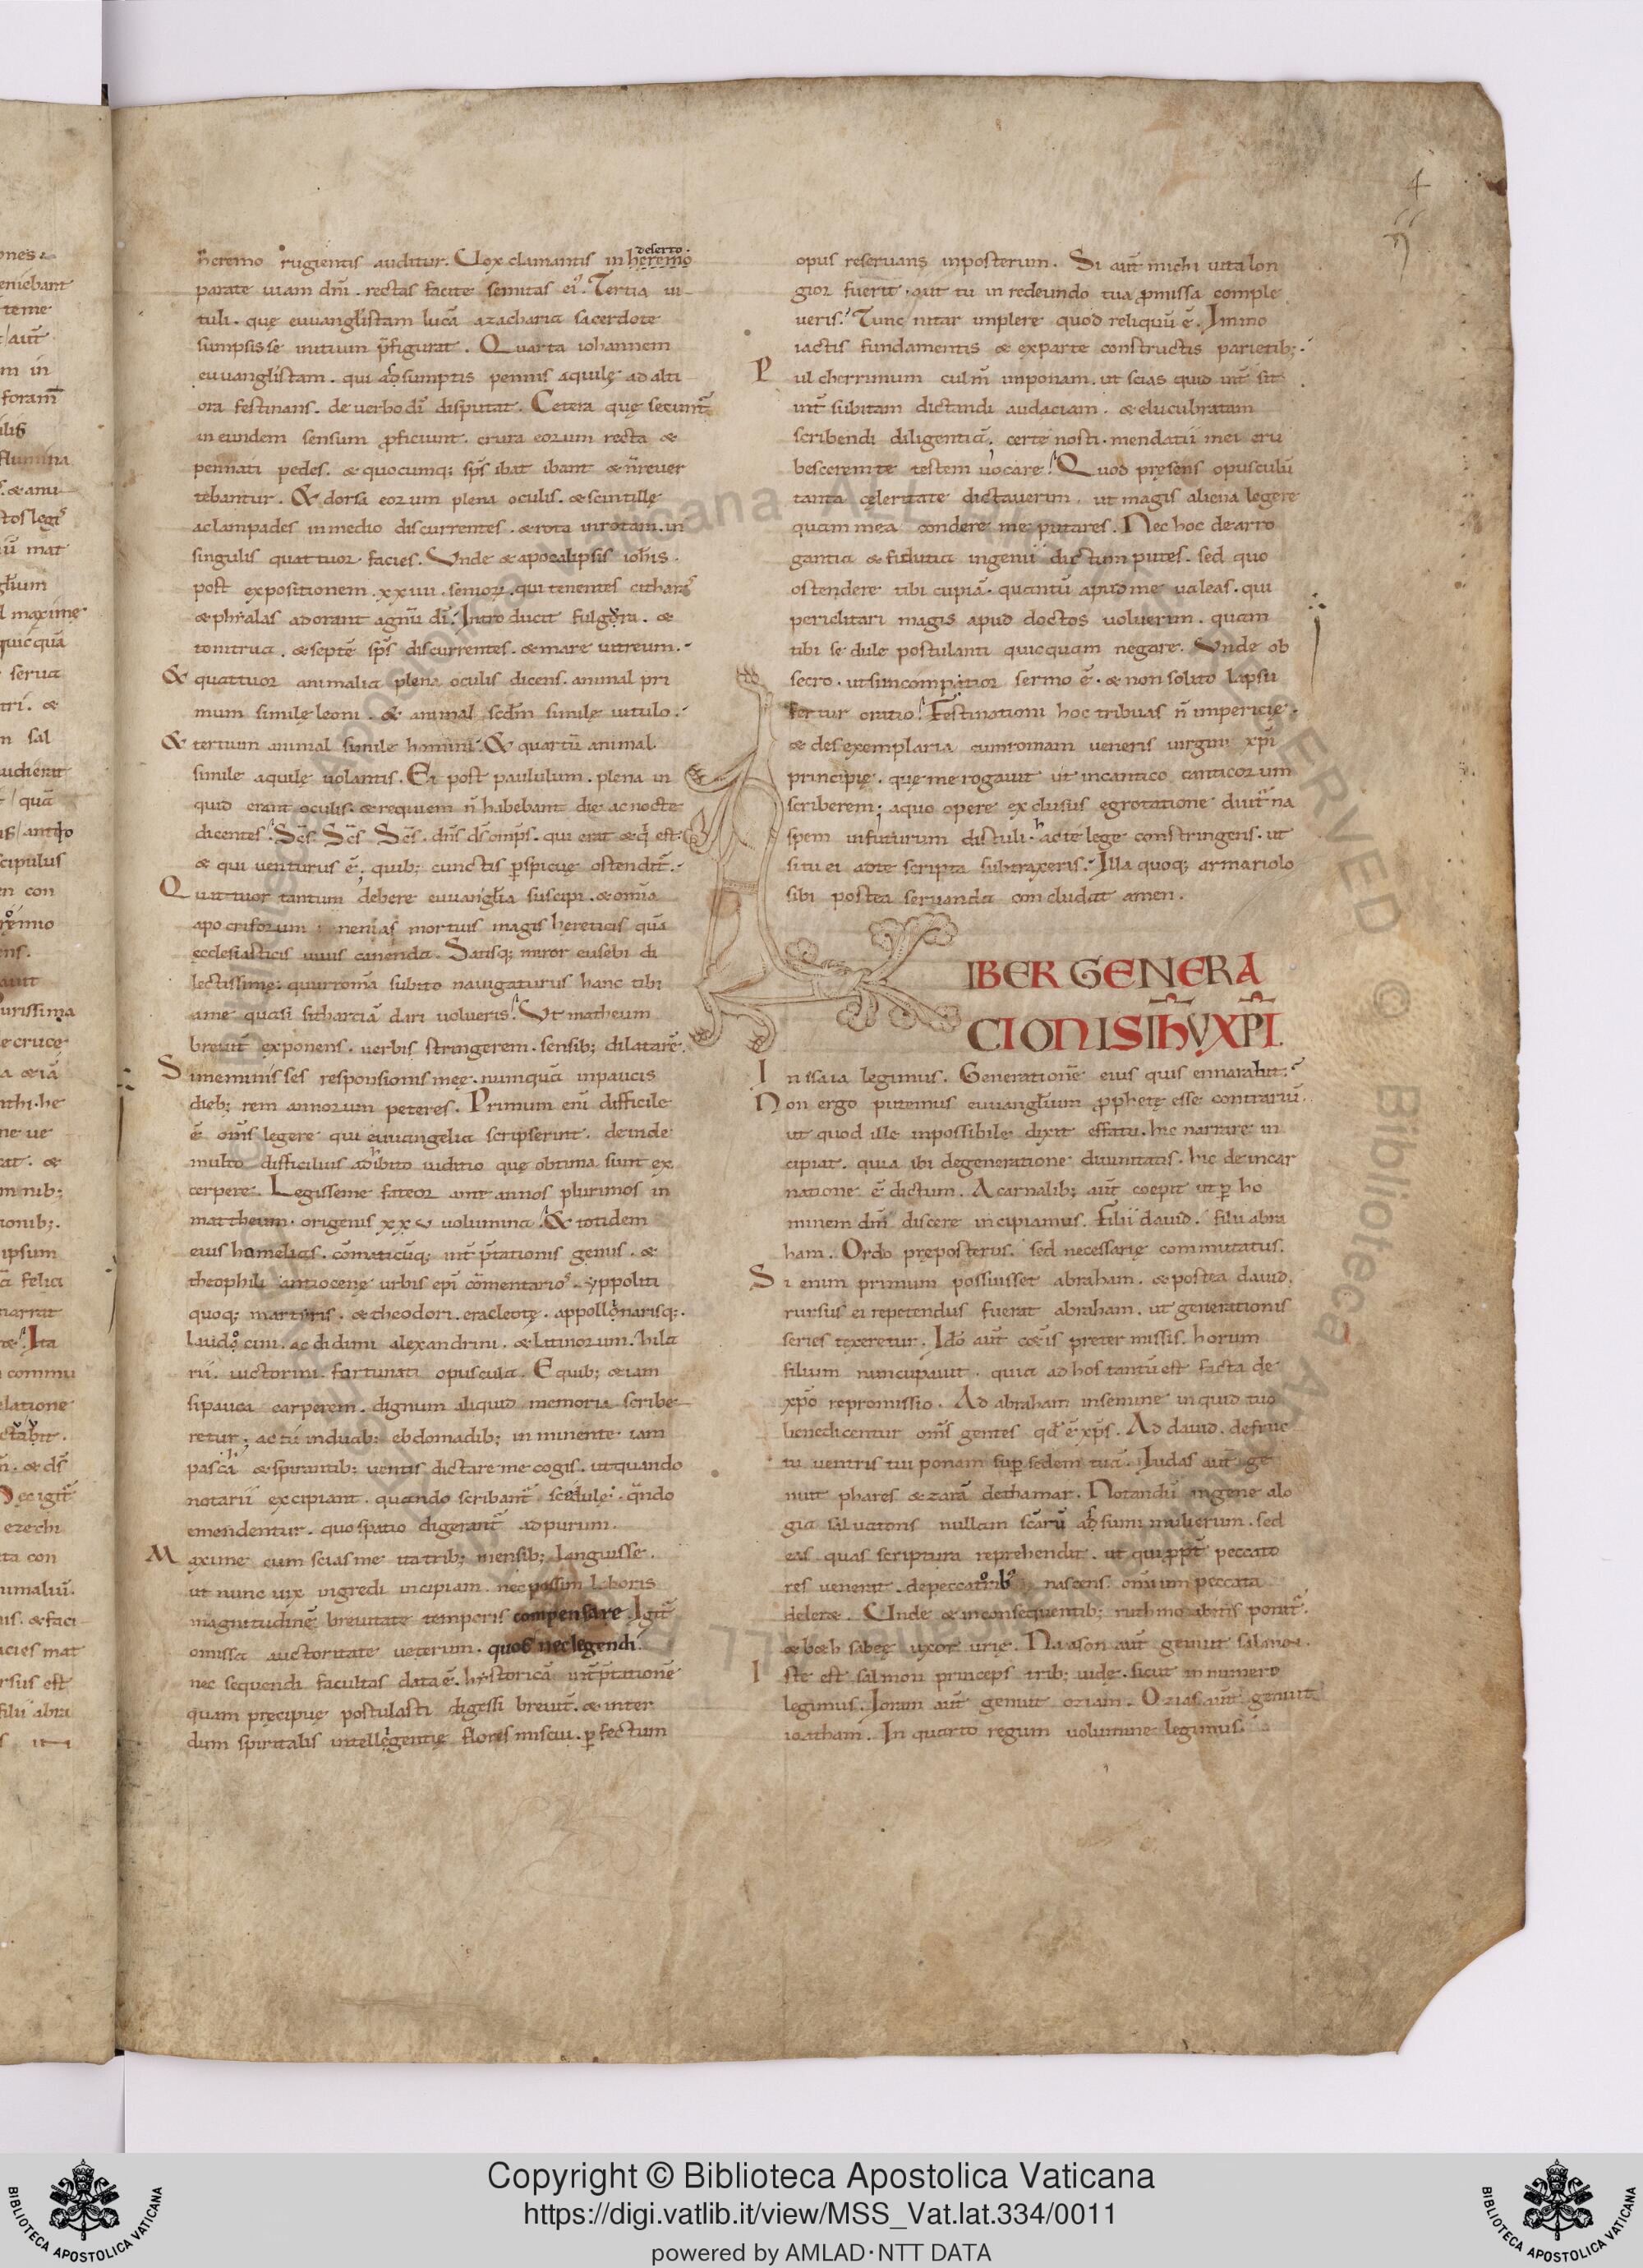 heremo rugientis auditur. Uox clamantis in heremo
deserto.
parate uiam dn̄i. rectas facite semitas ei᾿. Tertia ui-
tuli. quę euuanglistam lucā azacharia sacerdote
sumpsisse initium p̄figurat. Quarta iohannem
euuanglistam. qui adsumptis pennis aquilę ad alti
ora festinans. de uerbo di᾿ disputat. Cetera quę secunt᾿
in eundem sensum ꝓficiunt. crura eorum recta &
pennati pedes. & quocumq; sp̄s ibat ibant & n̄ reuer
tebantur. & dorsa eorum plena oculis. & scintillę
ac lampades in medio discurrentes. & rota in rotam. in
singulis quattuor facies. Unde & apocalipsis ioh̄is.
post expositionem .xxiiii. senioꝝ. qui tenentes cithar᾿
& phialas adorant agnū di᾿. Introducit fulgora. &
tonitrua. & septē sp̄s discurrentes. & mare uitreum.
& quattuor animalia plena oculis dicens. animal pri
mum simile leoni. & animal scd̄m simile uitulo.
& tertium animal simile homini. & quartū animal
simile aquilę uolantis. Et post paululum. plena in
quid erant oculis. & requiem n̄ habebant die ac nocte
dicentes. Sc̄s Sc̄s Sc̄s. dn̄s ds̄ omp̄s. qui erat & q̄ est.
& qui uenturus ē. quib; cunctis ꝑspicue ostendit᾿.
Quattuor tantum debere euuanglia suscipi. & omīa
apocriforum nenias mortuis magis hereticis quā
ecclesiasticis uiuis canenda. Satisq; miror eusebi di
lectissime. quurromā subito nauigaturus hanc tibi
ame quasi sithartiā dari uolueris. Ut matheum
breuit᾿ exponens. uerbis stringerem. sensib; dilatarē.
Si meministes responsionis meę. numquā in paucis
dieb; rem annorum peteres. Primum enī difficile
ē om̄s legere qui euuangelia scripserunt. deinde
multo difficilius adhibito iuditio quę obtima sunt ex
cerpere. Legisseme fateor ante annos plurimos in
mattheum. origenis xxv uolumina. & totidem
eius homelias. cōmaticūq; int᾿p̄tationis genus. &
theophili antiocenę urbis ep̄i cōmentario᾿. yppoliti
quoq; martyris. & theodori. eracleotę. appollonarisq;.
Luidocini. ac didimi alexandrini. & Latinorum. hila
rii. uictorini. fortunati opuscula. E quib; etiam
sipauca carperem. dignum aliquid memoria scribe-
retur; ac tu induab; ebdomadib; inminente iam
pascha & spirantib; uentis dictare me cogis. ut quando
notarii excipiant. quando scribant᾿ scedulę. qn̄do
emendentur. quo spatio digerant᾿ ad purum.
Maxime cum scias me ita trib; mensib; languisse.
ut nunc uix ingredi incipiam. nec possim Laboris
magnitudinē breuitate temporis compensare. Igit᾿
omissa auctoritate ueterum. quos nec legendi
nec sequendi facultas data ē. hystoricā int᾿p̄tationē
quam precipuę postulasti digessi breuit᾿. & inter
dum spiritalis intelligentię flores miscui. ꝑfectum
4
opus reseruans inposterum. Si aut᾿ michi uita lon
gior fuerit. aut tu in redeundo tua ꝓmissa comple
ueris. Tunc nitar implere quod reliquū ē. Immo
iactis fundamentis & exparte constructis parietib;.
Pulcherrimum culm̄ imponam. ut scias quid int᾿ sit
int᾿ subitam dictandi audaciam. & elucubratam
scribendi diligentiā. certe nosti. mendatii mei eru
bescerem te testem uocare. Quod pręsens opusculū
tanta celeritate dictauerim. ut magis aliena legere
quam mea condere me putares. Nec hoc dearro
gantia & fidutia ingenii dictum putes. sed quo
ostendere tibi cupiā. quantū apud me ualeas. qui
periclitari magis apud doctos uoluerim. quam
tibi sedule postulanti quicquam negare. Unde ob
secro. ut si incomptior sermo ē. & non solito lapsu
fertur oratio. Festinationi hoc tribuas n̄ impericię.
& des exemplaria cum romam ueneris uirgini xp̄i
principię. que me rogauit ut in cantico canticorum
scriberem; aquo opere exclusus egrotatione diuťna
spem infuturum distuli. hac te lege constringens. ut
si tu ei ad te scripta subtraxeris. Illa quoq; armariolo
sibi postea seruanda concludat amen.
LIBER GENERA
CIONIS IHV XPI.
In isaia legimus. Generationē eius quis ennarabit᾿
Non ergo putemus euuangłium ꝓphetę esse contrariū.
ut quod ille inpossibile dixit effatu. hic narrare in
cipiat. quia ibi degeneratione diuinitatis. hic deincar
natione ē dictum. A carnalib; aut᾿ coepit ut ꝑ ho
minem dm̄ discere incipiamus. Filii dauid. filii abra
ham. Ordo pręposterus. sed necessarię commutatus.
Si enim primum possuisset abraham. & postea dauid.
rursus ei repetendus fuerat abraham. ut generationis
series texeretur. Ido᾿ aut᾿ cęt̄is preter missis. horum
filium nuncupauit. quia ad hos tantū est facta de
xp̄o repromissio. Ad abraham insemine inquid tuo
benedicentur om̄s gentes qd᾿ ē xp̄s. Ad dauid. defruc
tu uentris tui ponam suꝑ sedem tuā. Iudas aut᾿ ge
nuit phares & zarā dethamar. Notandū ingenealo
gia saluatoris nullam sc̄arū adsumi mulierum. sed
eas quas scriptura reprehendit. ut qui ppt᾿ peccato
res uenerat. depeccatorib᾿ nascens omīum peccata
deleret. Unde & inconsequentib; ruth moabitis ponit᾿.
& bethsabeę uxor urię. Naason aut᾿ genuit salmon.
Iste est salmon princeps trib; iudę. sicut innumero
legimus. Ioram aut᾿ genuit oziam. Ozias aut᾿ genuit
ioatham. In quarto regum uolumine legimus.
Copyright © Biblioteca Apostolica Vaticana
https://digi.vatlib.it/view/MSS_Vat.lat.334/0011
powered by AMLAD·NTT DATA
BIBLIOTECA APOSTOLICA VATICANA
BIBLIOTECA APOSTOLICA VATICANA